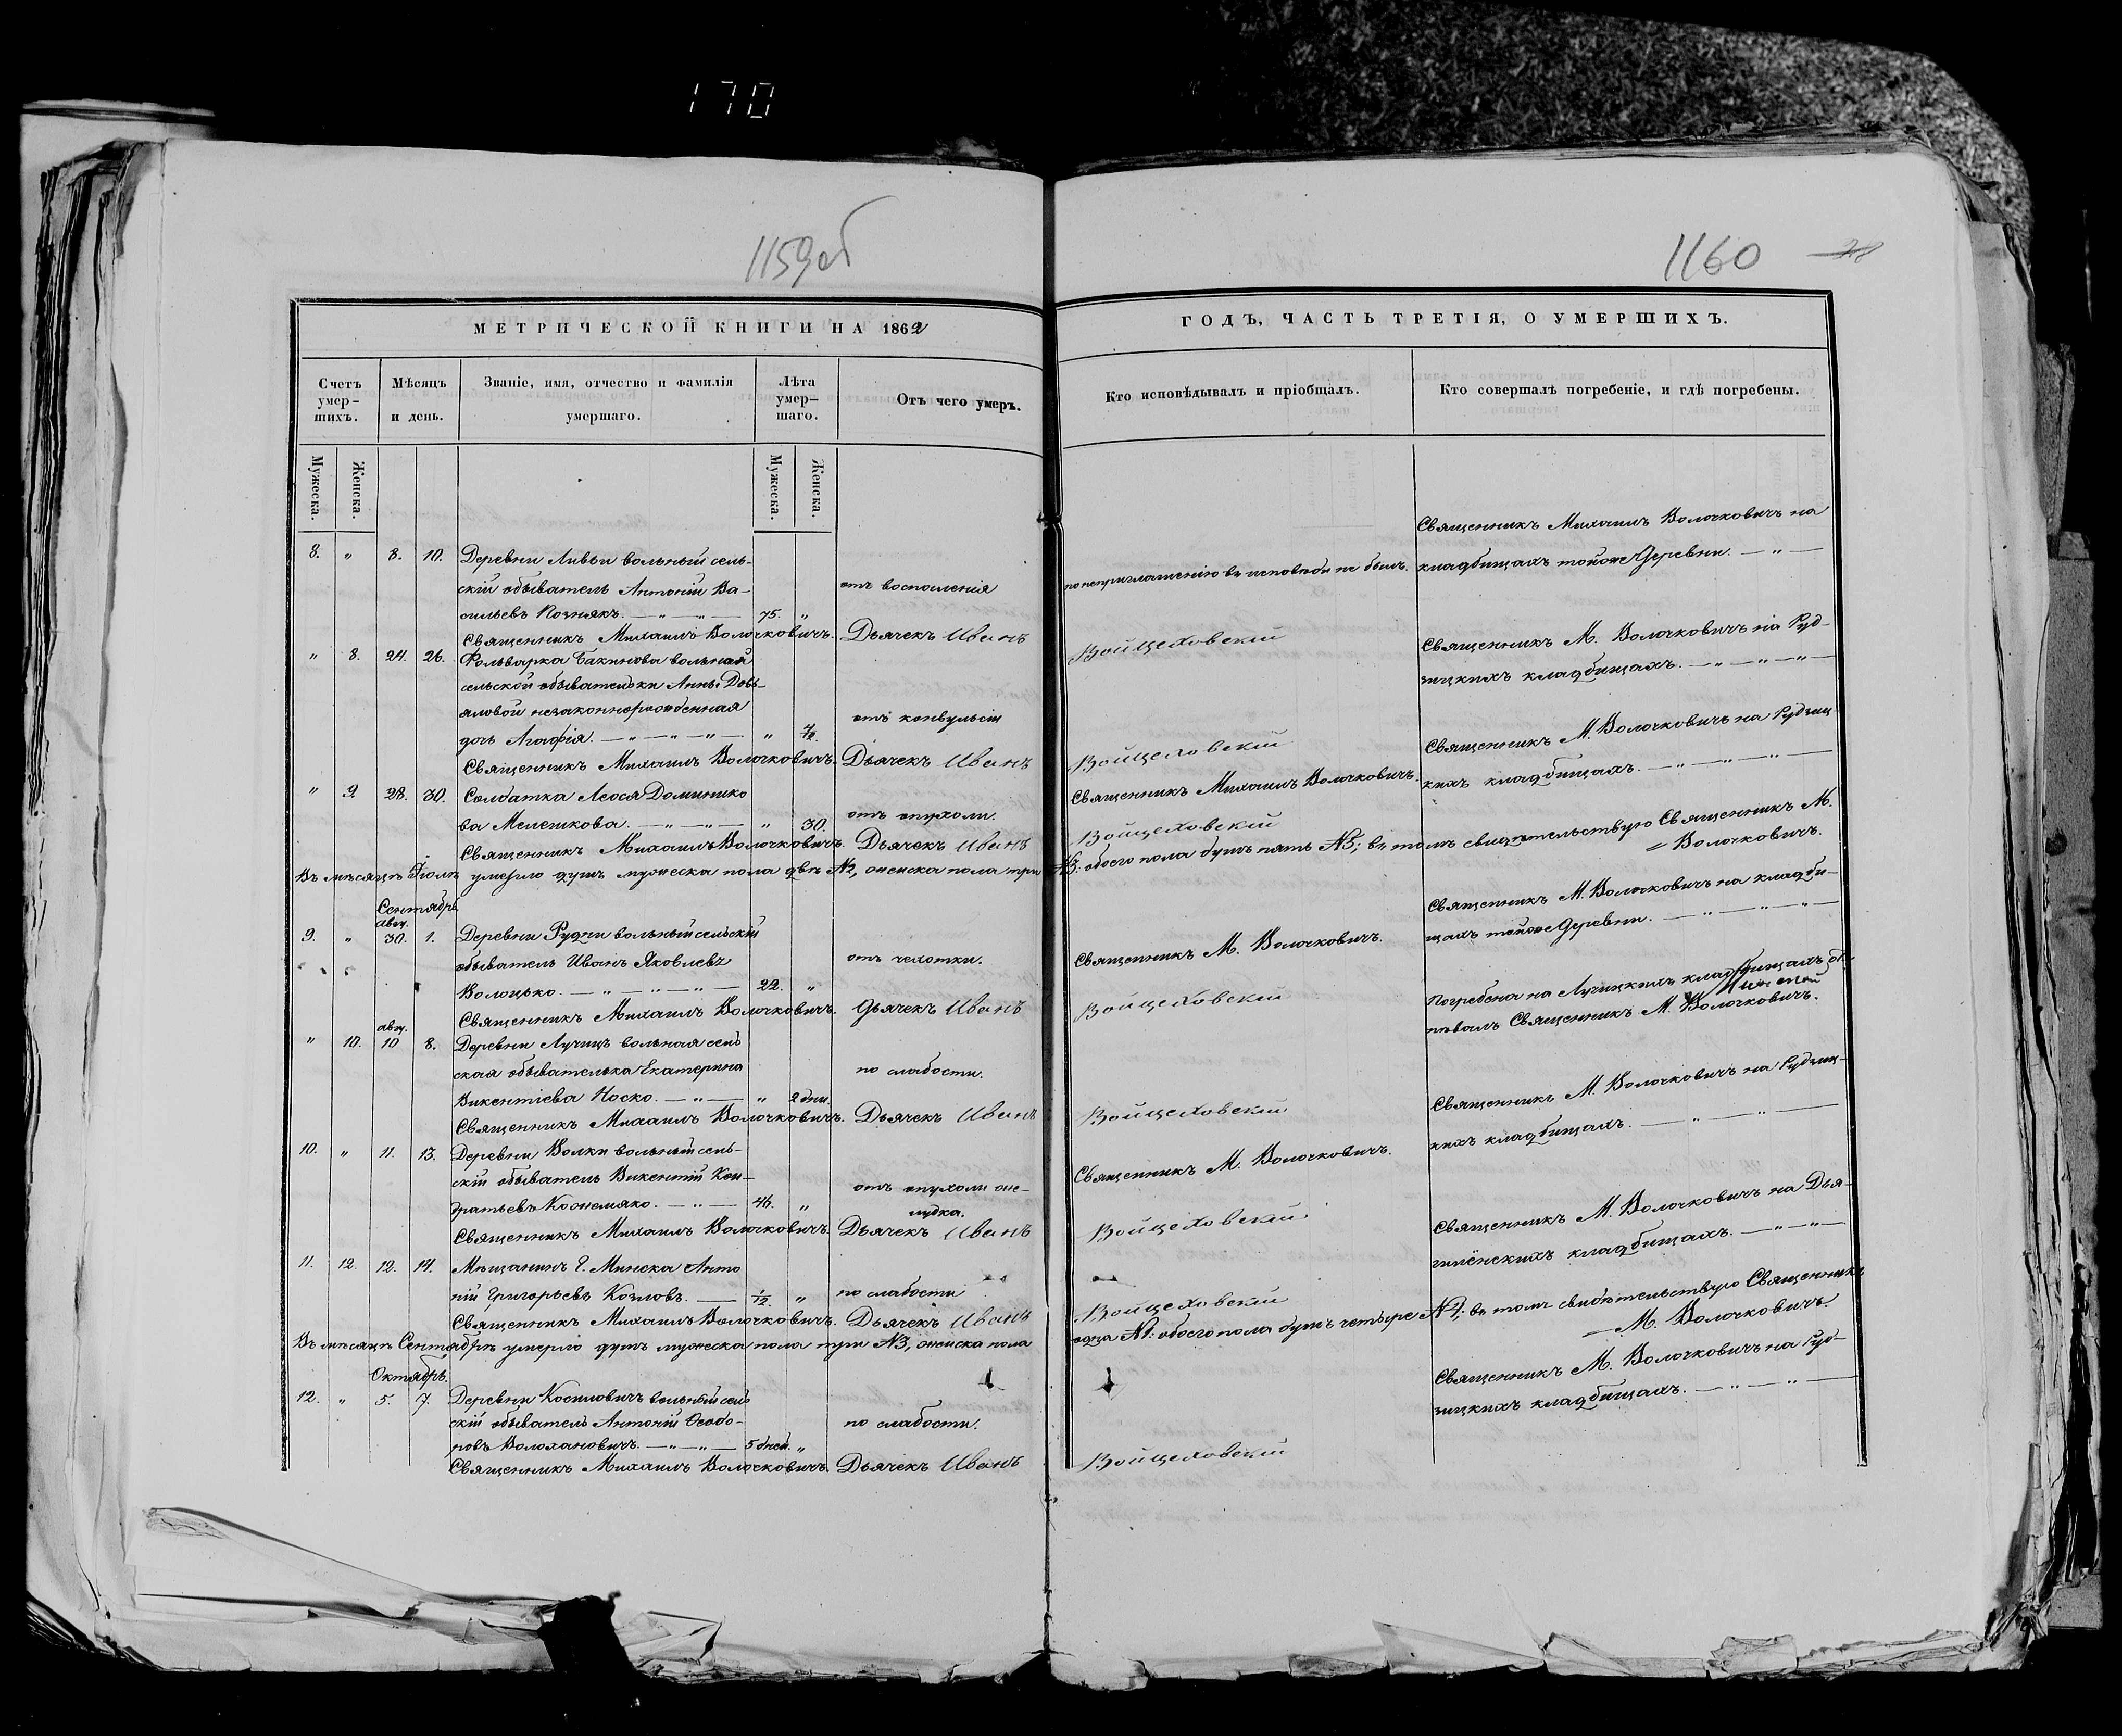 170
1159об
1160
МЕТРИЧЕСКОЙ КНИГИ НА 1862
ГОДЪ, ЧАСТЬ ТРЕТІЯ, О УМЕРШИХЪ.
Счетъ умер-
шихъ.
Мѣсяцъ
и день.
Званіе, имя, отчество и фамилія
умершаго.
Лѣта
умер-
шаго.
Отъ чего умеръ.
Кто исповѣдывалъ и пріобщалъ.
Кто совершалъ погребеніе, и гдѣ погребены.
Мужеска.
Женска.
Мужеска.
Женска.
8. " 8. 10. Деревни Ливьи вольный сель-
скій обыватель Антоній Ва-
сильевъ Познякъ. — " — " — 75. "
отъ воспаленія
по неприглашенію въ исповѣди не былъ.
Священникъ Михаилъ Волочковичъ на
кладбищахъ тойже Деревни. — " —
Священникъ Михаилъ Волочковичъ. Дьячекъ Иванъ Войцеховскій
" 8. 24. 26. Фольварка Бакинова вольной
сельской обывательки Анны Довь-
яловой незаконнорожденная
дочь Агафія. — " — " — " — " 4/12.
отъ конвульсіи
Священникъ М. Волочковичъ на Руд-
зицкихъ кладбищахъ. — " — " — " —
Священникъ Михаилъ Волочковичъ. Дьячекъ Иванъ Войцеховскій
" 9. 28. 30. Солдатка Леося Доминико
ва Мелешкова. — " — " — " 30.
отъ опухоли.
Священникъ Михаилъ Волочковичъ.
Священникъ М. Волочковичъ на Рудзиц-
кихъ кладбищахъ. — " — " — " —
Священникъ Михаилъ Волочковичъ. Дьячекъ Иванъ Войцеховскій
Въ мѣсяцѣ Іюлѣ умерло душъ мужеска пола двѣ №2, женска пола три №3: обоего пола душъ пять №5; въ томъ свидѣтельствую Священникъ М.
Волочковичъ.
Сентябрь.
авгу.
9. " 30. 1. Деревни Рудни вольный сельскій
обыватель Иванъ Яковлевъ
Волоцько. — " — " — " — 22. "
отъ чехотки.
Священникъ М. Волочковичъ.
Священникъ М. Волочковичъ на кладби-
щахъ тойже Деревни. — " — " — " —
Священникъ Михаилъ Волочковичъ. Дьячекъ Иванъ Войцеховскій
авгу.
" 10. 10 8. Деревни Лучицъ вольная сель
ская обывателька Екатерина
Викентіева Носко. — " — " 2 дни.
по слабости.
Погребена на Лучицкихъ кладбищахъ, от-
пѣвалъ Священникъ М. Волочковичъ.
Священникъ Михаилъ Волочковичъ. Дьячекъ Иванъ Войцеховскій
10. " 11. 13. Деревни Волки вольный сель-
скій обыватель Викентій Кон-
дратьевъ Кожемяко. — " — 46. "
отъ опухоли же-
лудка.
Священникъ М. Волочковичъ.
Священникъ М. Волочковичъ на Рудзиц-
кихъ кладбищахъ. — " — " —
Священникъ Михаилъ Волочковичъ. Дьячекъ Иванъ Войцеховскій
11. 12. 12. 14. Мѣщанинъ Г. Минска Анто
ній Григорьевъ Козловъ. — 1/12. "
по слабости
Священникъ М. Волочковичъ на Дя-
кладбищахъ. — " — " —
Священникъ Михаилъ Волочковичъ. Дьячекъ Иванъ Войцеховскій
Въ мѣсяцѣ Сентябрѣ умерло душъ мужеска пола три №3, женска пола одна №1: обоего пола душъ четыре №4; въ томъ свидѣтельствую Священникъ
М. Волочковичъ.
Октябрь.
12. " 5. 7. Деревни Косиловичъ вольный сель
скій обыватель Антоній Ѳеодо-
ровъ Волохановичъ. — " — " — 5 дней. "
по слабости.
Священникъ М. Волочковичъ на Руд-
зицкихъ кладбищахъ. — " — " —
Священникъ Михаилъ Волочковичъ. Дьячекъ Иванъ Войцеховскій